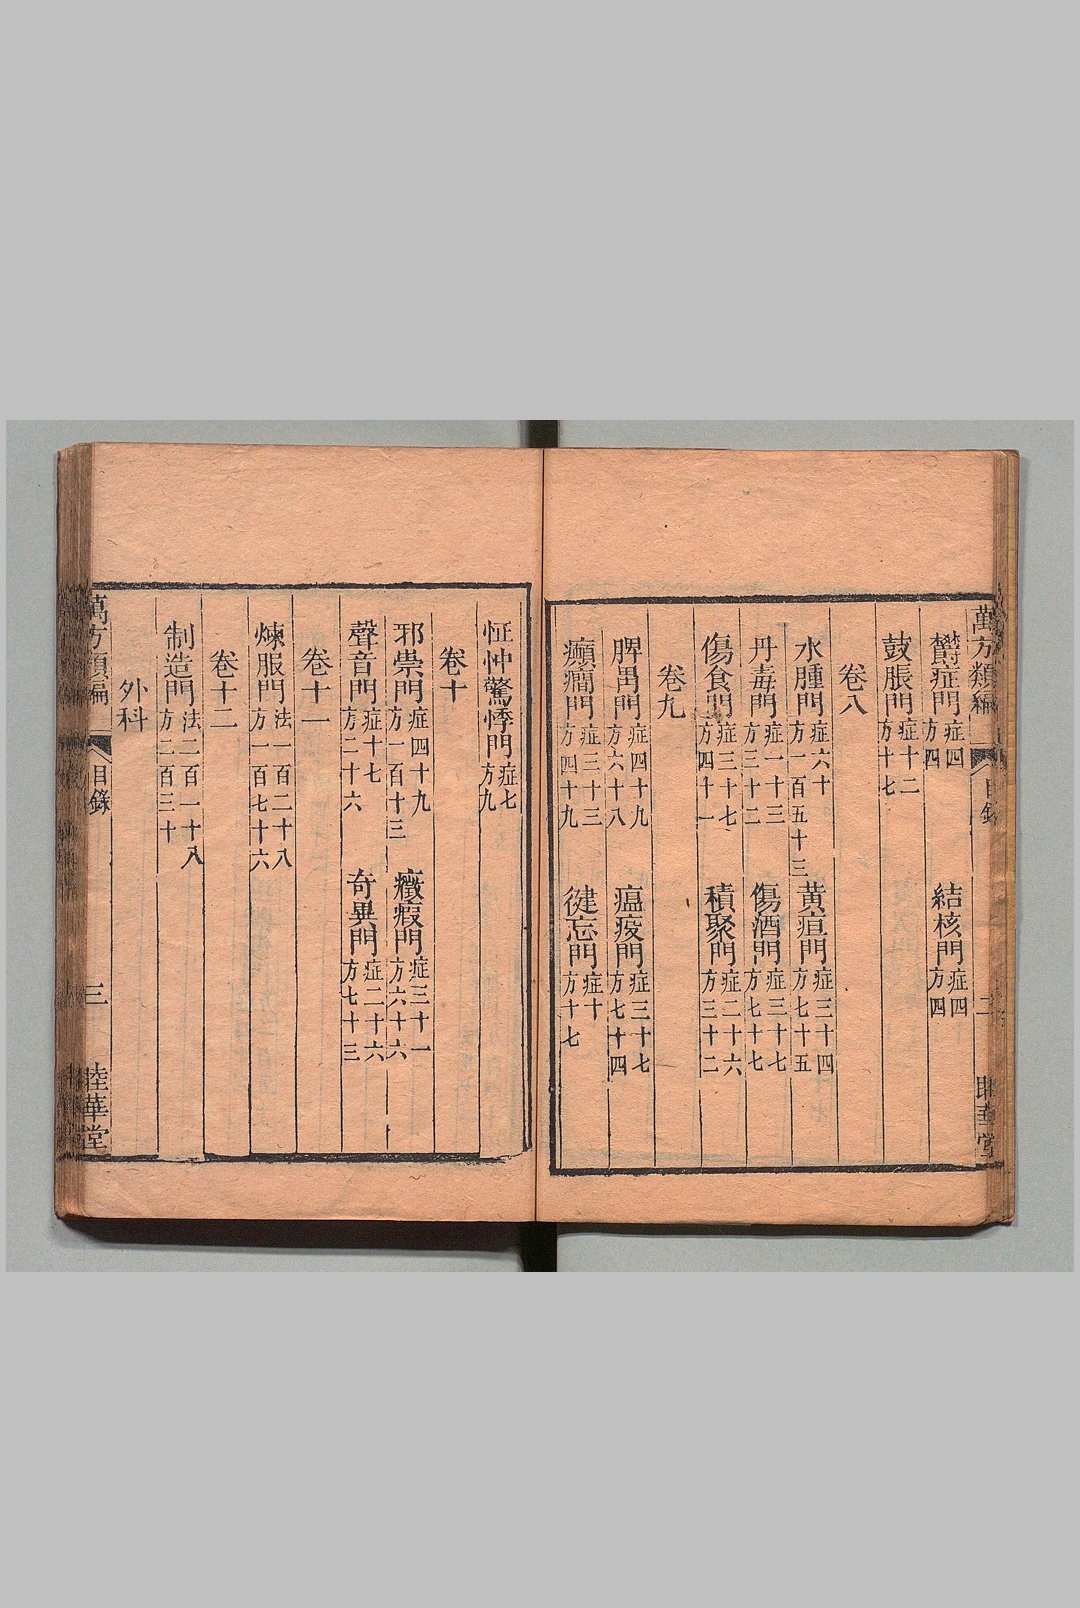 萬方類編 目錄 二 睦華堂
鬱症門 症四 方四 結核門 症四 方四
鼓脹門 症十二 方十七
卷八
水腫門 症六十 方一百五十三 黃疸門 症三十四 方七十五
丹毒門 症一十三 方三十二 傷酒門 症三十七 方七十七
傷食門 症三十七 方四十一 積聚門 症二十六 方三十二
卷九
脾胃門 症四十九 方六十八 瘟疫門 症三十七 方七十四
癲癇門 症三十三 方四十九 健忘門 症十 方十七
怔忡驚悸門 症七 方九
卷十
邪祟門 症四十九 方一百十三 癥瘕門 症三十一 方六十六
聲音門 症十七 方二十六 奇異門 症二十六 方七十三
卷十一
煉服門 法一百二十八 方一百七十六
卷十二
制造門 法二百一十八 方二百三十
外科
萬方類編 目錄 三 睦華堂